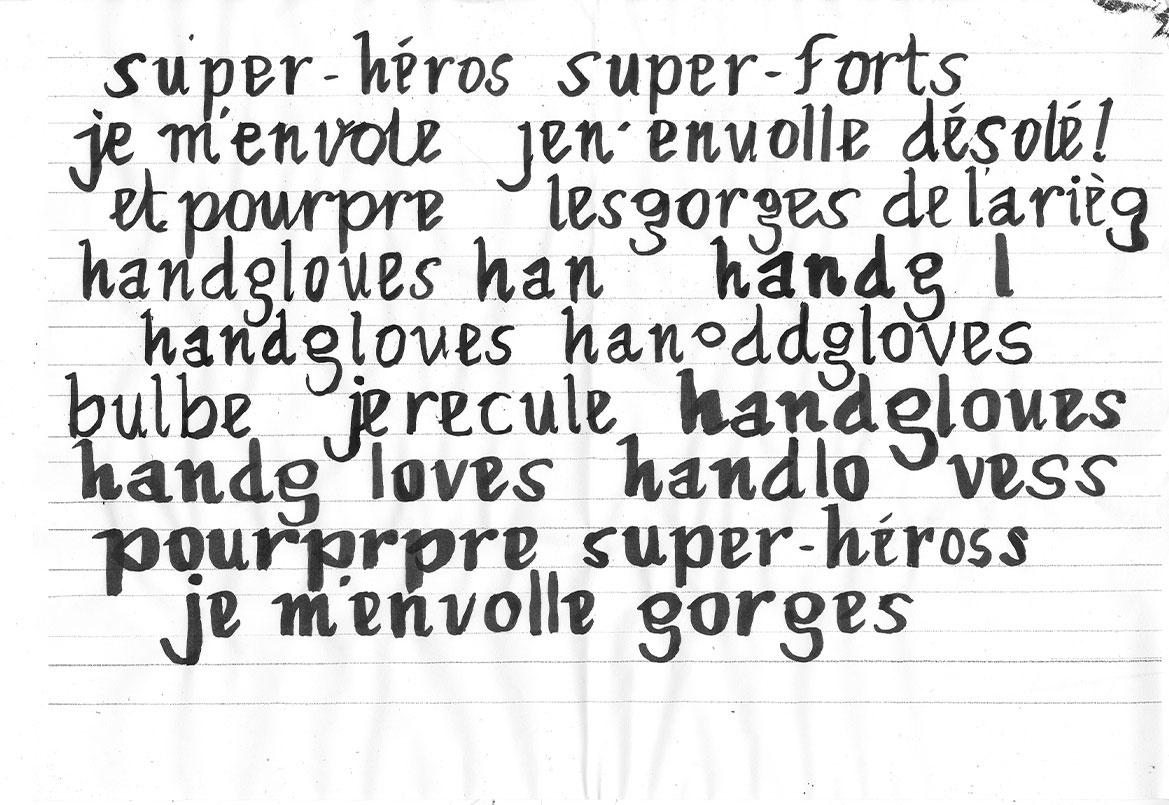 super-héros super-forts
je m'envole jen·envolle désolé!
et pourpre lesgorges de l'arièg
handgloves han handg l
handgloves hanoddgloves
bulbe je recule handgloves
handg loves handlo vess
pourprpre super-héross
je m'envolle gorges